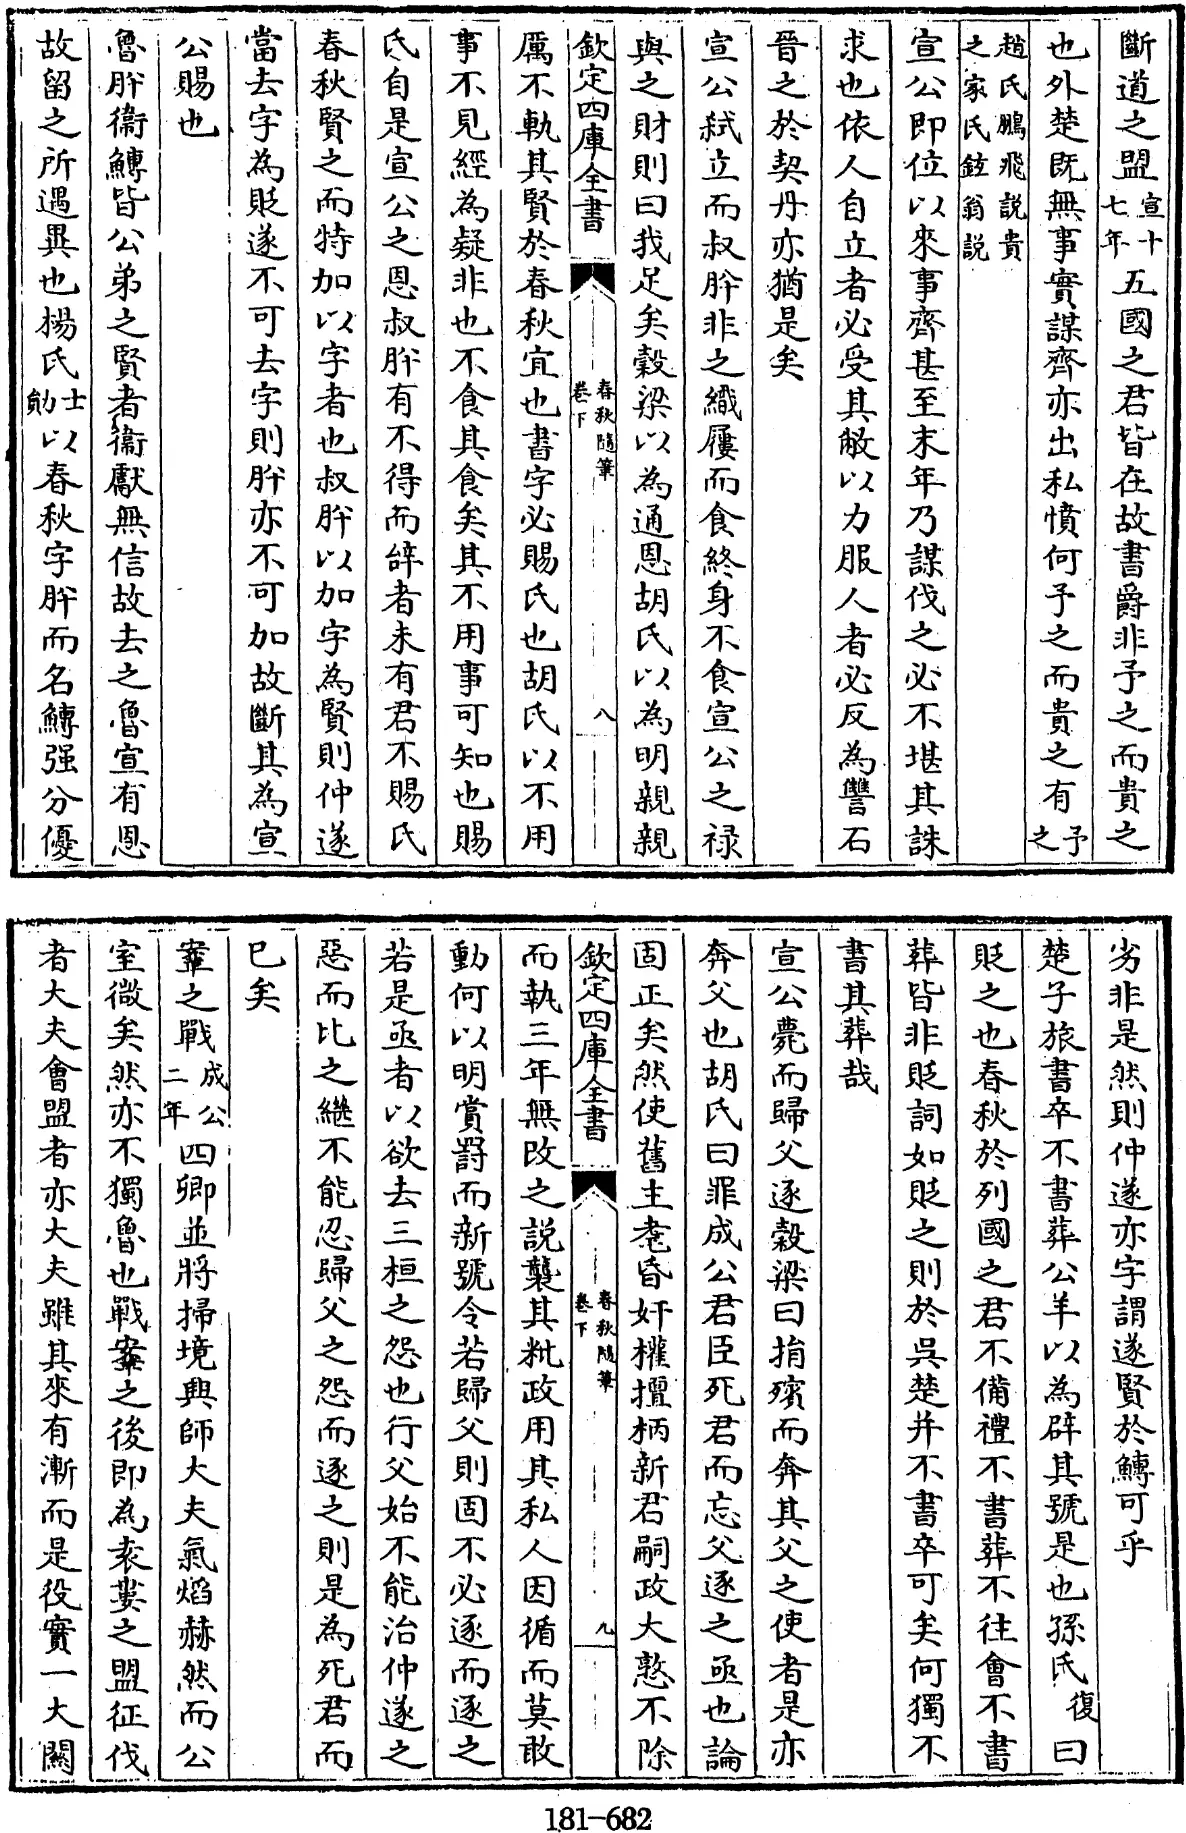 斷道之盟宣十七年五國之君皆在故書爵非予之而貴之
也外楚既無事實謀齊亦出私憤何予之而貴之有予之
趙氏鵬飛説貴之家氏鉉翁説
宣公即位以來事齊甚至末年乃謀伐之必不堪其誅
求也依人自立者必受其敝以力服人者必反為讐石
晉之於契丹亦猶是矣
宣公弑立而叔肸非之織屨而食終身不食宣公之祿
與之財則曰我足矣穀梁以為通恩胡氏以為明親親
欽定四庫全書
春秋隨筆
卷下
八
厲不軌其賢於春秋宜也書字必賜氏也胡氏以不用
事不見經為疑非也不食其食矣其不用事可知也賜
氏自是宣公之恩叔肸有不得而辭者未有君不賜氏
春秋賢之而特加以字者也叔肸以加字為賢則仲遂
當去字為貶遂不可去字則肸亦不可加故斷其為宣
公賜也
魯肸衞鱄皆公弟之賢者衞獻無信故去之魯宣有恩
故留之所遇異也楊氏士勛以春秋字肸而名鱄强分優
劣非是然則仲遂亦字謂遂賢於鱄可乎
楚子旅書卒不書葬公羊以為辟其號是也孫氏復曰
貶之也春秋於列國之君不備禮不書葬不往會不書
葬皆非貶詞如貶之則於吳楚并不書卒可矣何獨不
書其葬哉
宣公薨而歸父逐穀梁曰捐殯而奔其父之使者是亦
奔父也胡氏曰罪成公君臣死君而忘父逐之亟也論
固正矣然使舊主耄昏奸權擅柄新君嗣政大憝不除
欽定四庫全書
春秋隨筆
卷下
九
而執三年無改之説襲其秕政用其私人因循而莫敢
動何以明賞罰而新號令若歸父則固不必逐而逐之
若是亟者以欲去三桓之怨也行父始不能治仲遂之
惡而比之繼不能忍歸父之怨而逐之則是為死君而
已矣
鞌之戰成公二年四卿並將掃境興師大夫氣焰赫然而公
室微矣然亦不獨魯也戰鞌之後即為袁婁之盟征伐
者大夫會盟者亦大夫雖其來有漸而是役實一大關
181-682